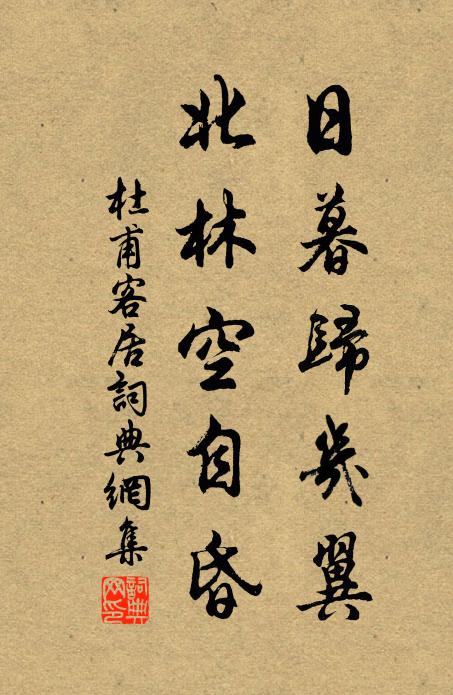 日暮歸幾翼
北林空自昏
杜甫客居詞典網集
詞典网印